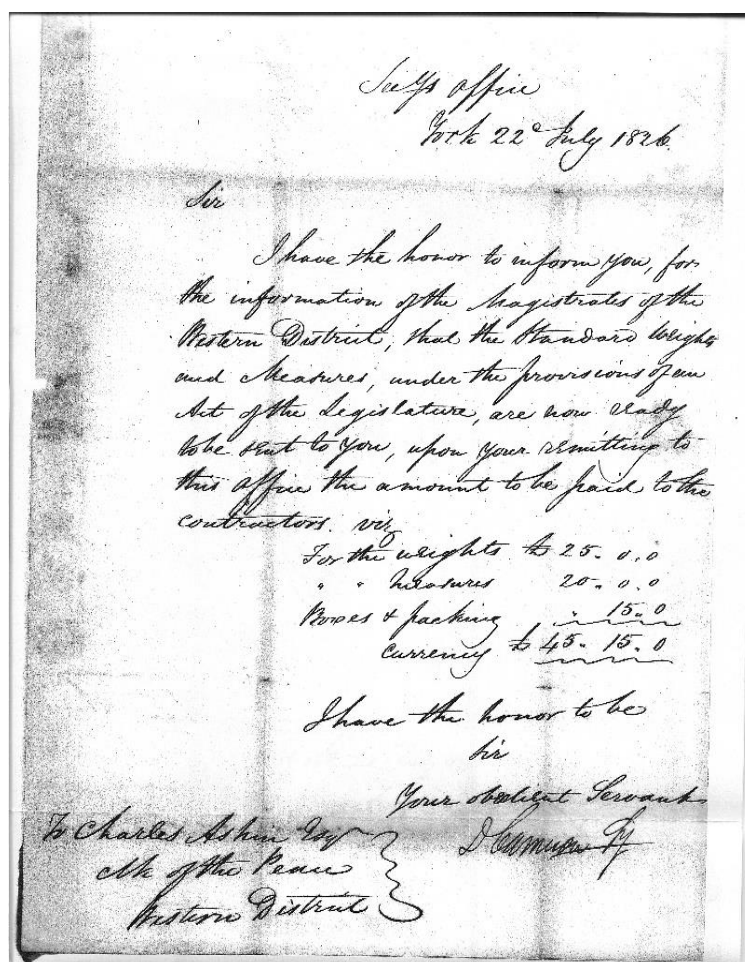 Secys office
York 22d July 1826.
Sir
I have the honor to inform you, for
the information of the Magistrates of the
Western District, that the Standard Weights
and Measures, under the provisions of an
Act of the Legislature, are now ready
to be sent to you, upon your remitting to
this office the amount to be paid to the
contractors. viz
For the weights £ 25. 0. 0
" " Measures 20. 0. 0
Boxes & packing " 15. 0
currency £ 45. 15. 0
I have the honor to be
Sir
Your obedient Servant
D Cameron Sy
To Charles Askin Esqr
Clk of the Peace
Western District